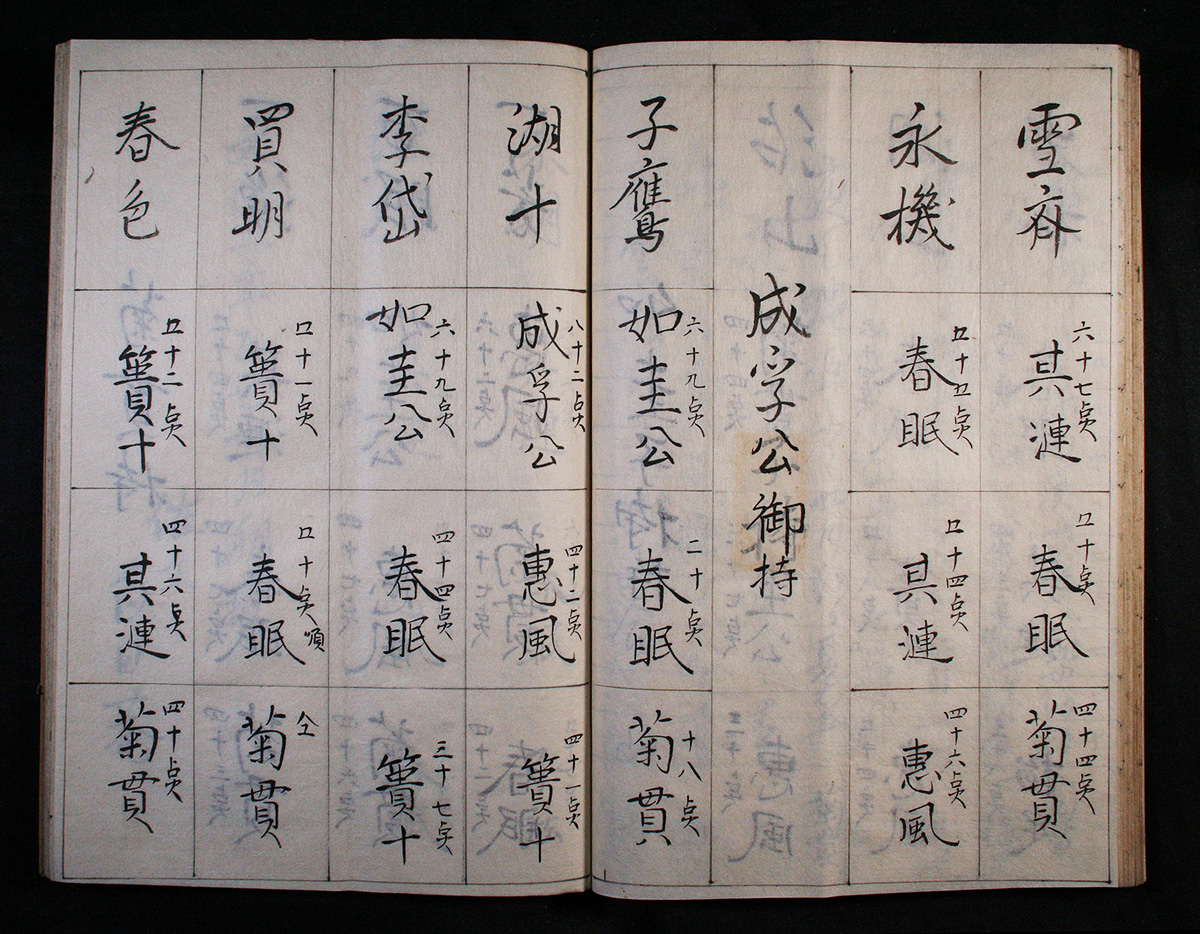 雪斉
六十七点
其漣
五十点
春眠
四十四点
菊貫
永機
五十五点
春眠
五十四点
其漣
四十六点
惠風
成孚公御持
子鷹
六十九点
如圭公
二十点
春眠
十八点
菊貫
湖十
八十二点
成孚公
四十二点
惠風
四十一点
簣十
李岱
六十九点
如圭公
四十四点
春眠
三十七点
簣十
買明
五十一点
簣十
五十点順
春眠
仝
菊貫
春色
五十二点
簣十
四十六点
其漣
四十点
菊貫